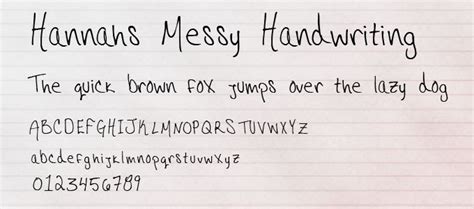 Hannahs Messy Handwriting
The quick brown fox jumps over the lazy dog
ABCDEFGHIJKLMNOPQRSTUVWXYZ
abcdefghijklmnopqrstuvwxyz
0123456789